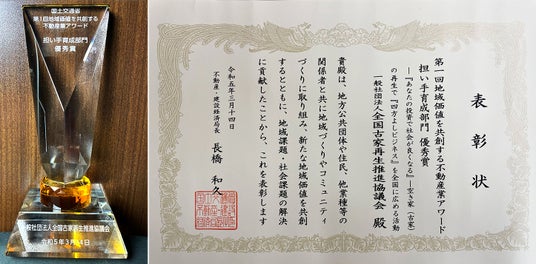 国土交通省
第1回地域価値を共創する
不動産業アワード
担い手育成部門
優秀賞
一般社団法人全国古家再生推進協議会
令和5年3月14日
表彰状
第一回地域価値を共創する不動産業アワード
担い手育成部門 優秀賞
―『あなたの投資で社会が良くなる』―空き家(古家)
の再生で『四方よしビジネス』を全国に広める活動
一般社団法人全国古家再生推進協議会 殿
貴殿は、地方公共団体や住民、他業種等の
関係者と共に地域づくりやコミュニティ
づくりに取り組み、新たな地域価値を共創
するとともに、地域課題・社会課題の解決
に貢献したことから、これを表彰します
令和五年三月十四日
不動産・建設経済局長 長橋 和久